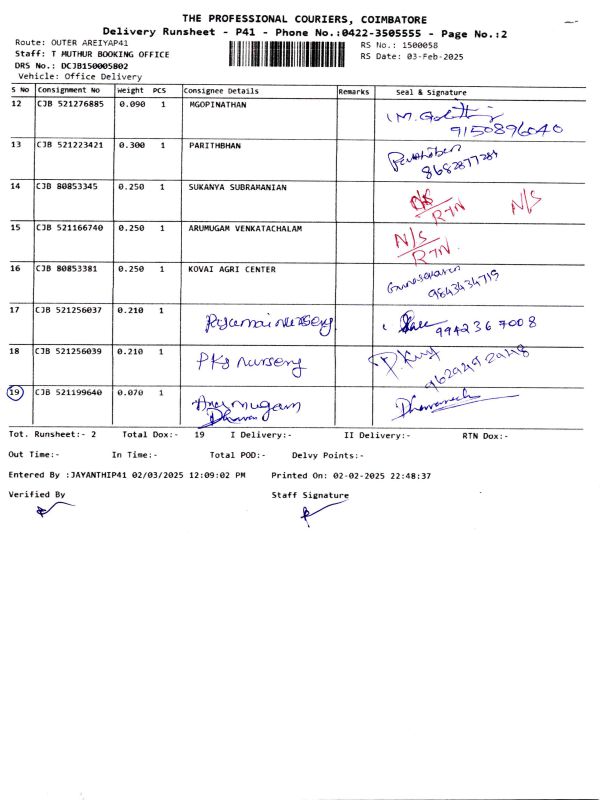 THE PROFESSIONAL COURIERS, COIMBATORE
Delivery Runsheet - P41 - Phone No.:0422-3505555 - Page No.:2
Route: OUTER AREIYAP41
RS No.: 1500058
Staff: T MUTHUR BOOKING OFFICE
RS Date: 03-Feb-2025
DRS No.: DCJB150005802
Vehicle: Office Delivery
S No Consignment No Weight PCS Consignee Details Remarks Seal & Signature
12 CJB 521276885 0.090 1 MGOPINATHAN
9150896040
13 CJB 521223421 0.300 1 PARITHBHAN
8682877284
14 CJB 80853345 0.250 1 SUKANYA SUBRAMANIAN N/S RTN N/S
15 CJB 521166740 0.250 1 ARUMUGAM VENKATACHALAM N/S RTN
16 CJB 80853381 0.250 1 KOVAI AGRI CENTER
9843434719
17 CJB 521256037 0.210 1 nursery 9942367008
18 CJB 521256039 0.210 1 PKS nursery
19 CJB 521199640 0.070 1 Arumugam
Tot. Runsheet:- 2 Total Dox:- 19 I Delivery:- II Delivery:- RTN Dox:-
Out Time:- In Time:- Total POD:- Delvy Points:-
Entered By :JAYANTHIP41 02/03/2025 12:09:02 PM Printed On: 02-02-2025 22:48:37
Verified By Staff Signature